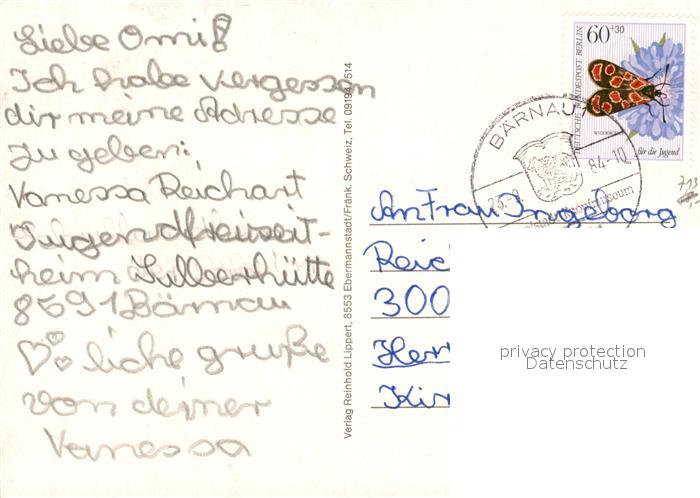 Liebe Omi!
Ich habe vergessen
dir meine Adresse
zu geben:
Vanessa Reichart
Jugendfreizeit-
heim Silberhütte
8591 Bärnau
♡liche gruße
von deiner
Vanessa
Verlag Reinhold Lippert, 8553 Ebermannstadt/Fränk. Schweiz, Tel. 09194/514
60+30
DEUTSCHE BUNDESPOST BERLIN
für die Jugend
BÄRNAU
84-10
An Frau Ingeborg
Reic
300
Herr
Kir
privacy protection
Datenschutz